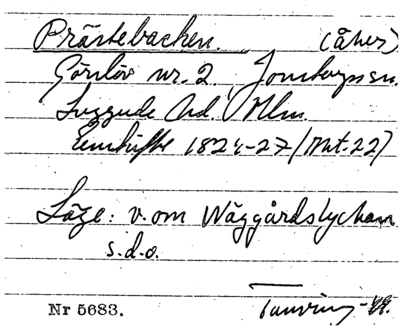 Prästebacken. (åker)
Görslöv nr. 2, Jonstorps sn.
Luggude hd. Mlm.
Enskifte 1824-27 (Akt. 22)
Läge: v. om Wäggårdslyckan
s.d.o.
Nr 5683. Tauvins -49.